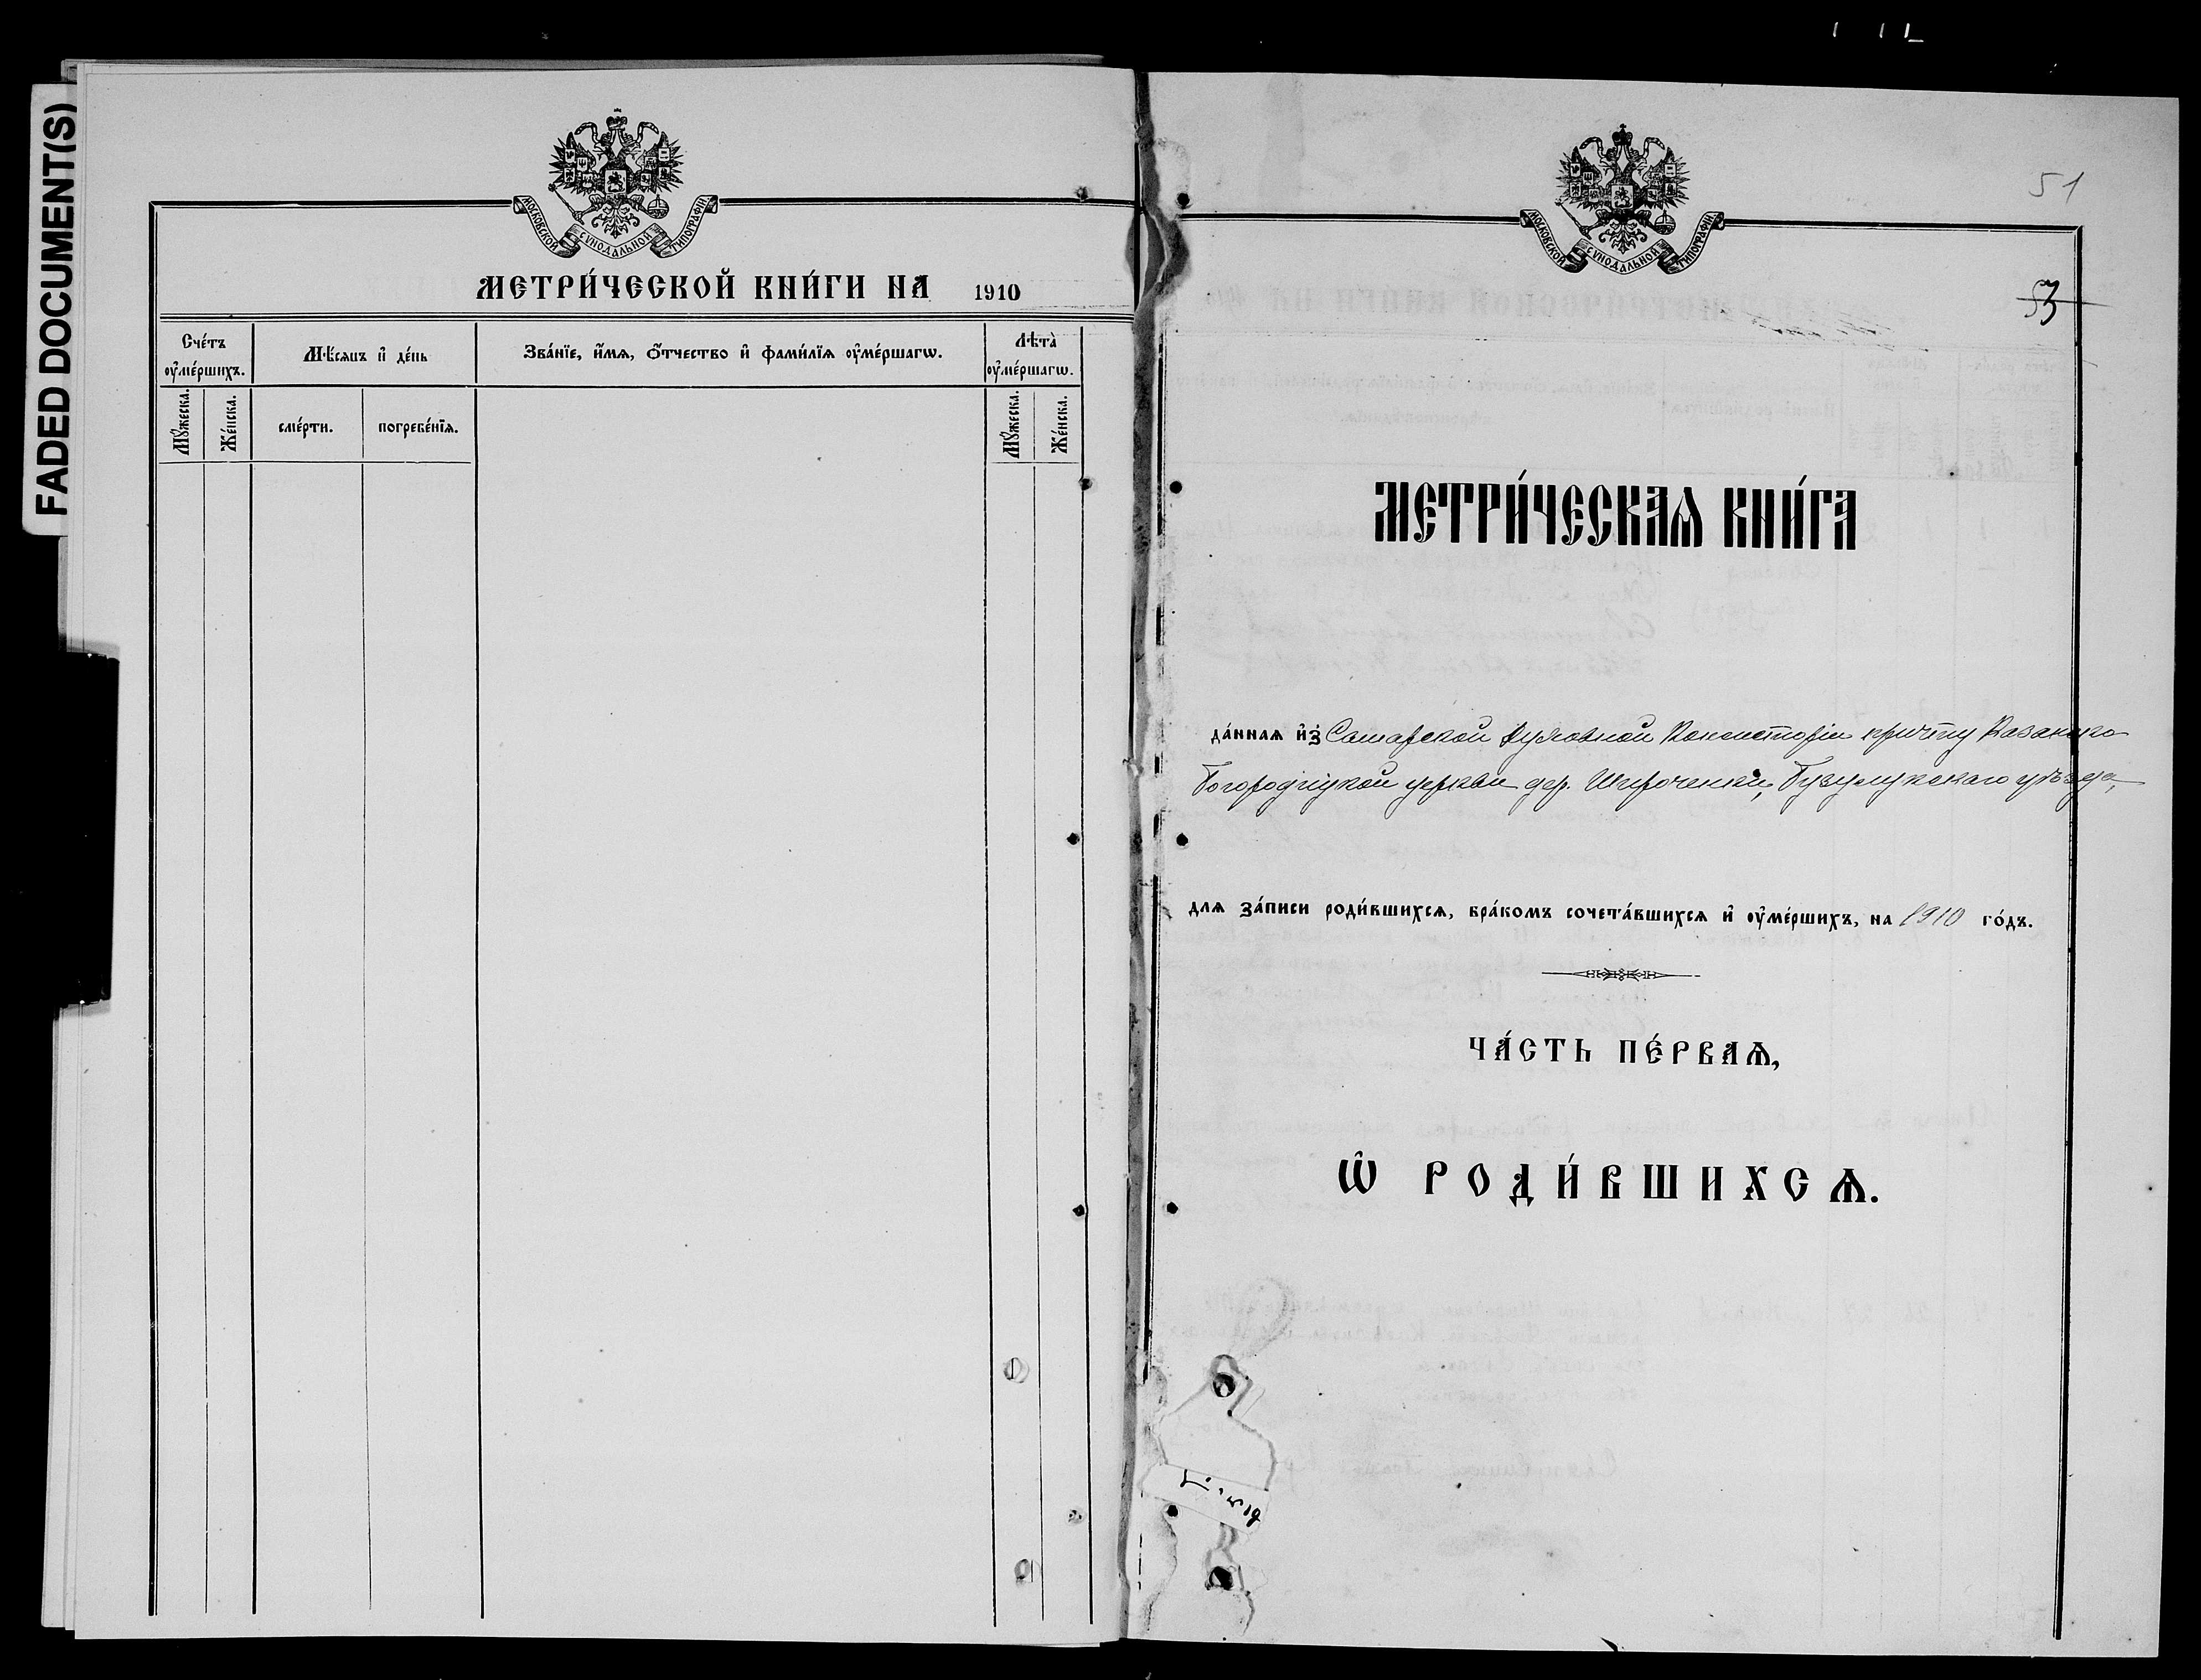 FADED DOCUMENT(S)
МОСКОВСКОЙ СѴНОДАЛЬНОЙ ТИПОГРАФІИ
МЕТРИ́ЧЕСКОЙ КНИ́ГИ НА 1910
Сче́тъ ᲂу҆ме́ршихъ.
Мѣ́сяцъ и҆ де́нь
Зва́нїе, и҆́мѧ, ѻ҆́тчество и҆ фами́лїѧ ᲂу҆ме́ршагѡ.
Лѣ̑та ᲂу҆ме́ршагѡ.
Мꙋ́жеска.
Же́нска.
сме́рти.
погребе́нїѧ.
Мꙋ́жеска.
Же́нска.
51
МОСКОВСКОЙ СѴНОДАЛЬНОЙ ТИПОГРАФІИ
53
МЕТРИ́ЧЕСКАѦ КНИ́ГА
да́ннаѧ и҆з Самарской Духовной Консисторіи причту Казанско-
Богородицкой церкви дер. Широченки, Бузулукскаго уѣзда,
длѧ за́писи роди́вшихсѧ, бра́комъ сочета́вшихсѧ и҆ ᲂу҆ме́ршихъ, на 1910 го́дъ.
ЧА́СТЬ ПЕ́РВАѦ,
Ѽ РОДИ́ВШИХСѦ.